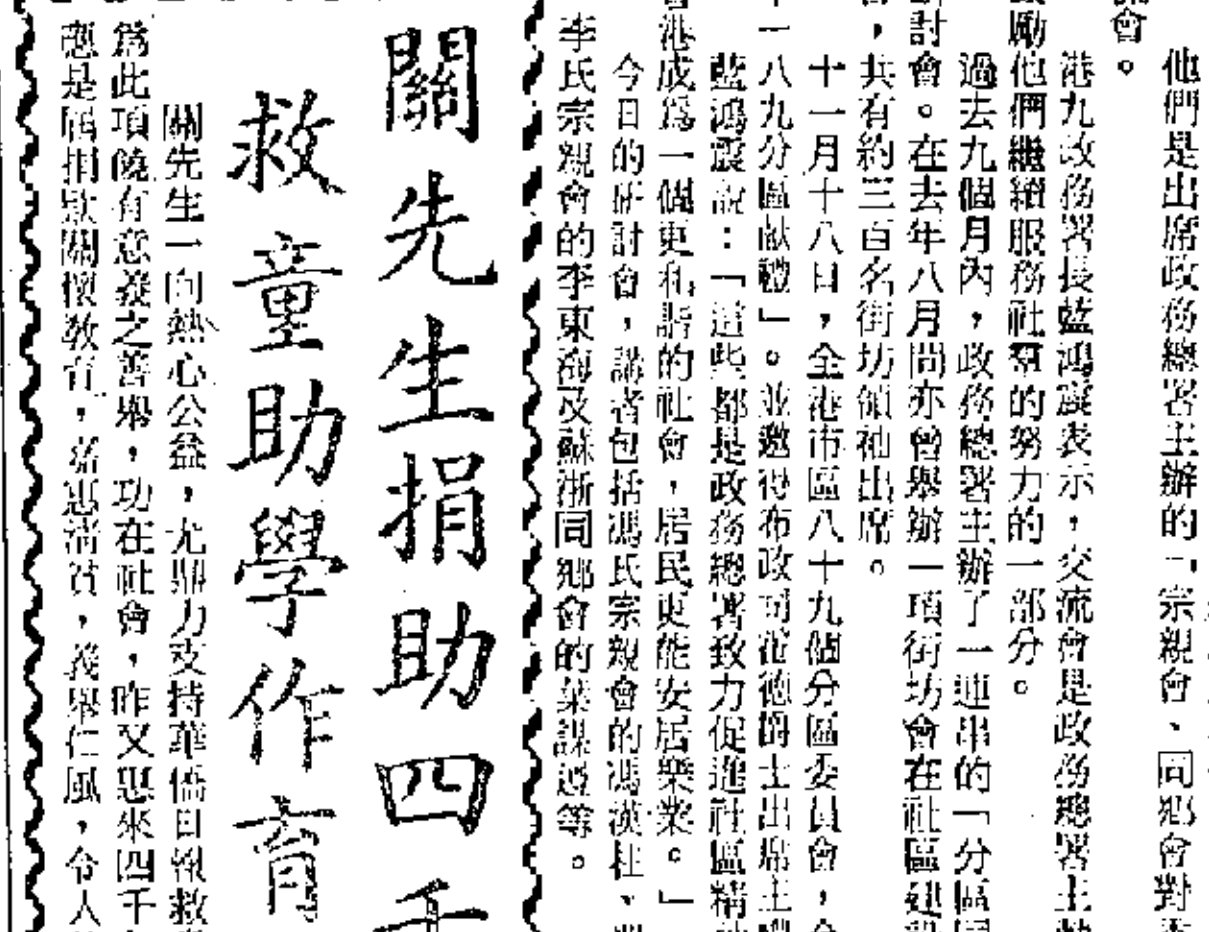 會。
他們是出席政務總署主辦的「宗親會、同鄉會對
港九政務署長藍鴻震表示，交流會是政務總署主
勵他們繼續服務社羣的努力的一部分。
過去九個月內，政務總署主辦了一連串的「分區
討會。在去年八月間亦曾舉辦一項街坊會在社區建
，共有約三百名街坊領袖出席。
十一月十八日，全港市區八十九個分區委員會，
一八九分區献禮」。並邀得布政司霍德爵士出席主
藍鴻震說：「這些都是政務總署致力促進社區精
港成爲一個更和諧的社會，居民更能安居樂業。」
今日的研討會，講者包括馮氏宗親會的馮漢柱、
李氏宗親會的李東海及蘇浙同鄉會的葉謀遵等。
關先生捐助四千
救童助學作育
關先生一向熱心公益，尤鼎力支持華僑日報救
爲此項饒有意義之善舉，功在社會，昨又惠來四千
是屆捐欵關懷敎育，嘉惠清貧，義舉仁風，令人